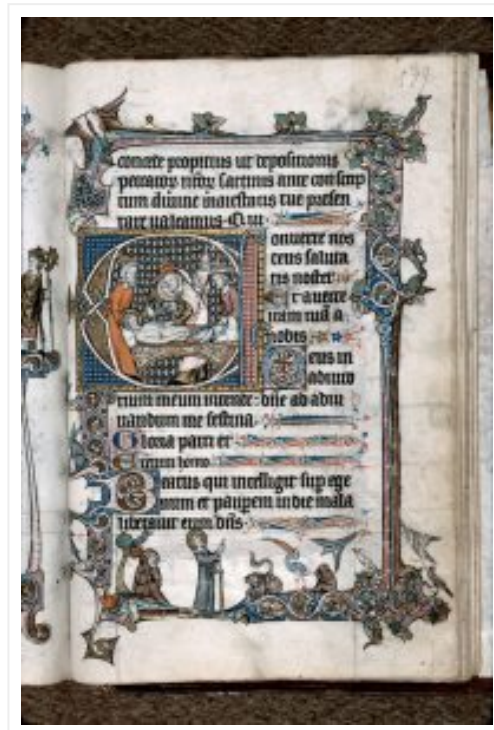 concede propitius ut depositionis
peccatoꝝ nr̄oꝝ sarcinis ante conspec
tum diuine maiestatis tue presen
tare ualeamus. Qui
Conuerte nos
deus saluta
ris noster
Et auerte
iram tuā a
nobis
Deus in
adiuto
rium meum intende: dn̄e ad adiu
uandum me festina.
Gloria patri et
homo
Beatus qui intelligit sup ege
num et paupem in die mala
liberauit eum dn̄s.